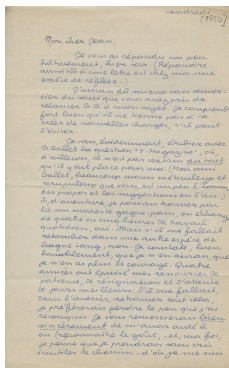 vendredi
[1950]
Mon cher Jean,
Je vous ai répondu un peu
hâtivement, hier soir. (Répondre
aussitôt à une lettre est chez moi une
espèce de réflexe.)
J'aurais dû mieux vous remer-
cier du souci que vous avez pris de
relancer G. G. à mon sujet. Je comprends
fort bien qu'il ne tienne pas à se
créer de nouvelles charges, s'il peut
l'éviter.
Je vais, évidemment, étudier avec
Gallet la question "V. Magazine", où,
d'ailleurs, il n'est pas certain du tout
qu'il y ait place pour moi. (Mon ami
Gallet, beaucoup moins méticuleux et
scrupuleux que vous, est un peu l'homme
des propos et des suggestions en l'air.)
Si, d'aventure, je pouvais trouver par
là un modeste gagne-pain, en échange
de quatre ou cinq heures de travail
quotidien, oui. Mais s'il me fallait
retomber dans une autre espèce de
bagne, non. Je constate, bien
humblement, que je n'en aurais, que
je n'en ai plus le courage. Quatre
années ont épuisé mes réserves de
patience, de résignation et d'attente
de jours meilleurs. S'il me fallait,
dans l'avenir, retrouver tout cela,
je préférerais perdre le peu que j'ai
reconquis. Je vous remercierai bien
sincèrement de m'avoir aidé à
en reconnaître le goût, et, ma foi,
je pense que je prendrai sans très
hésiter le chemin... d'où je me suis